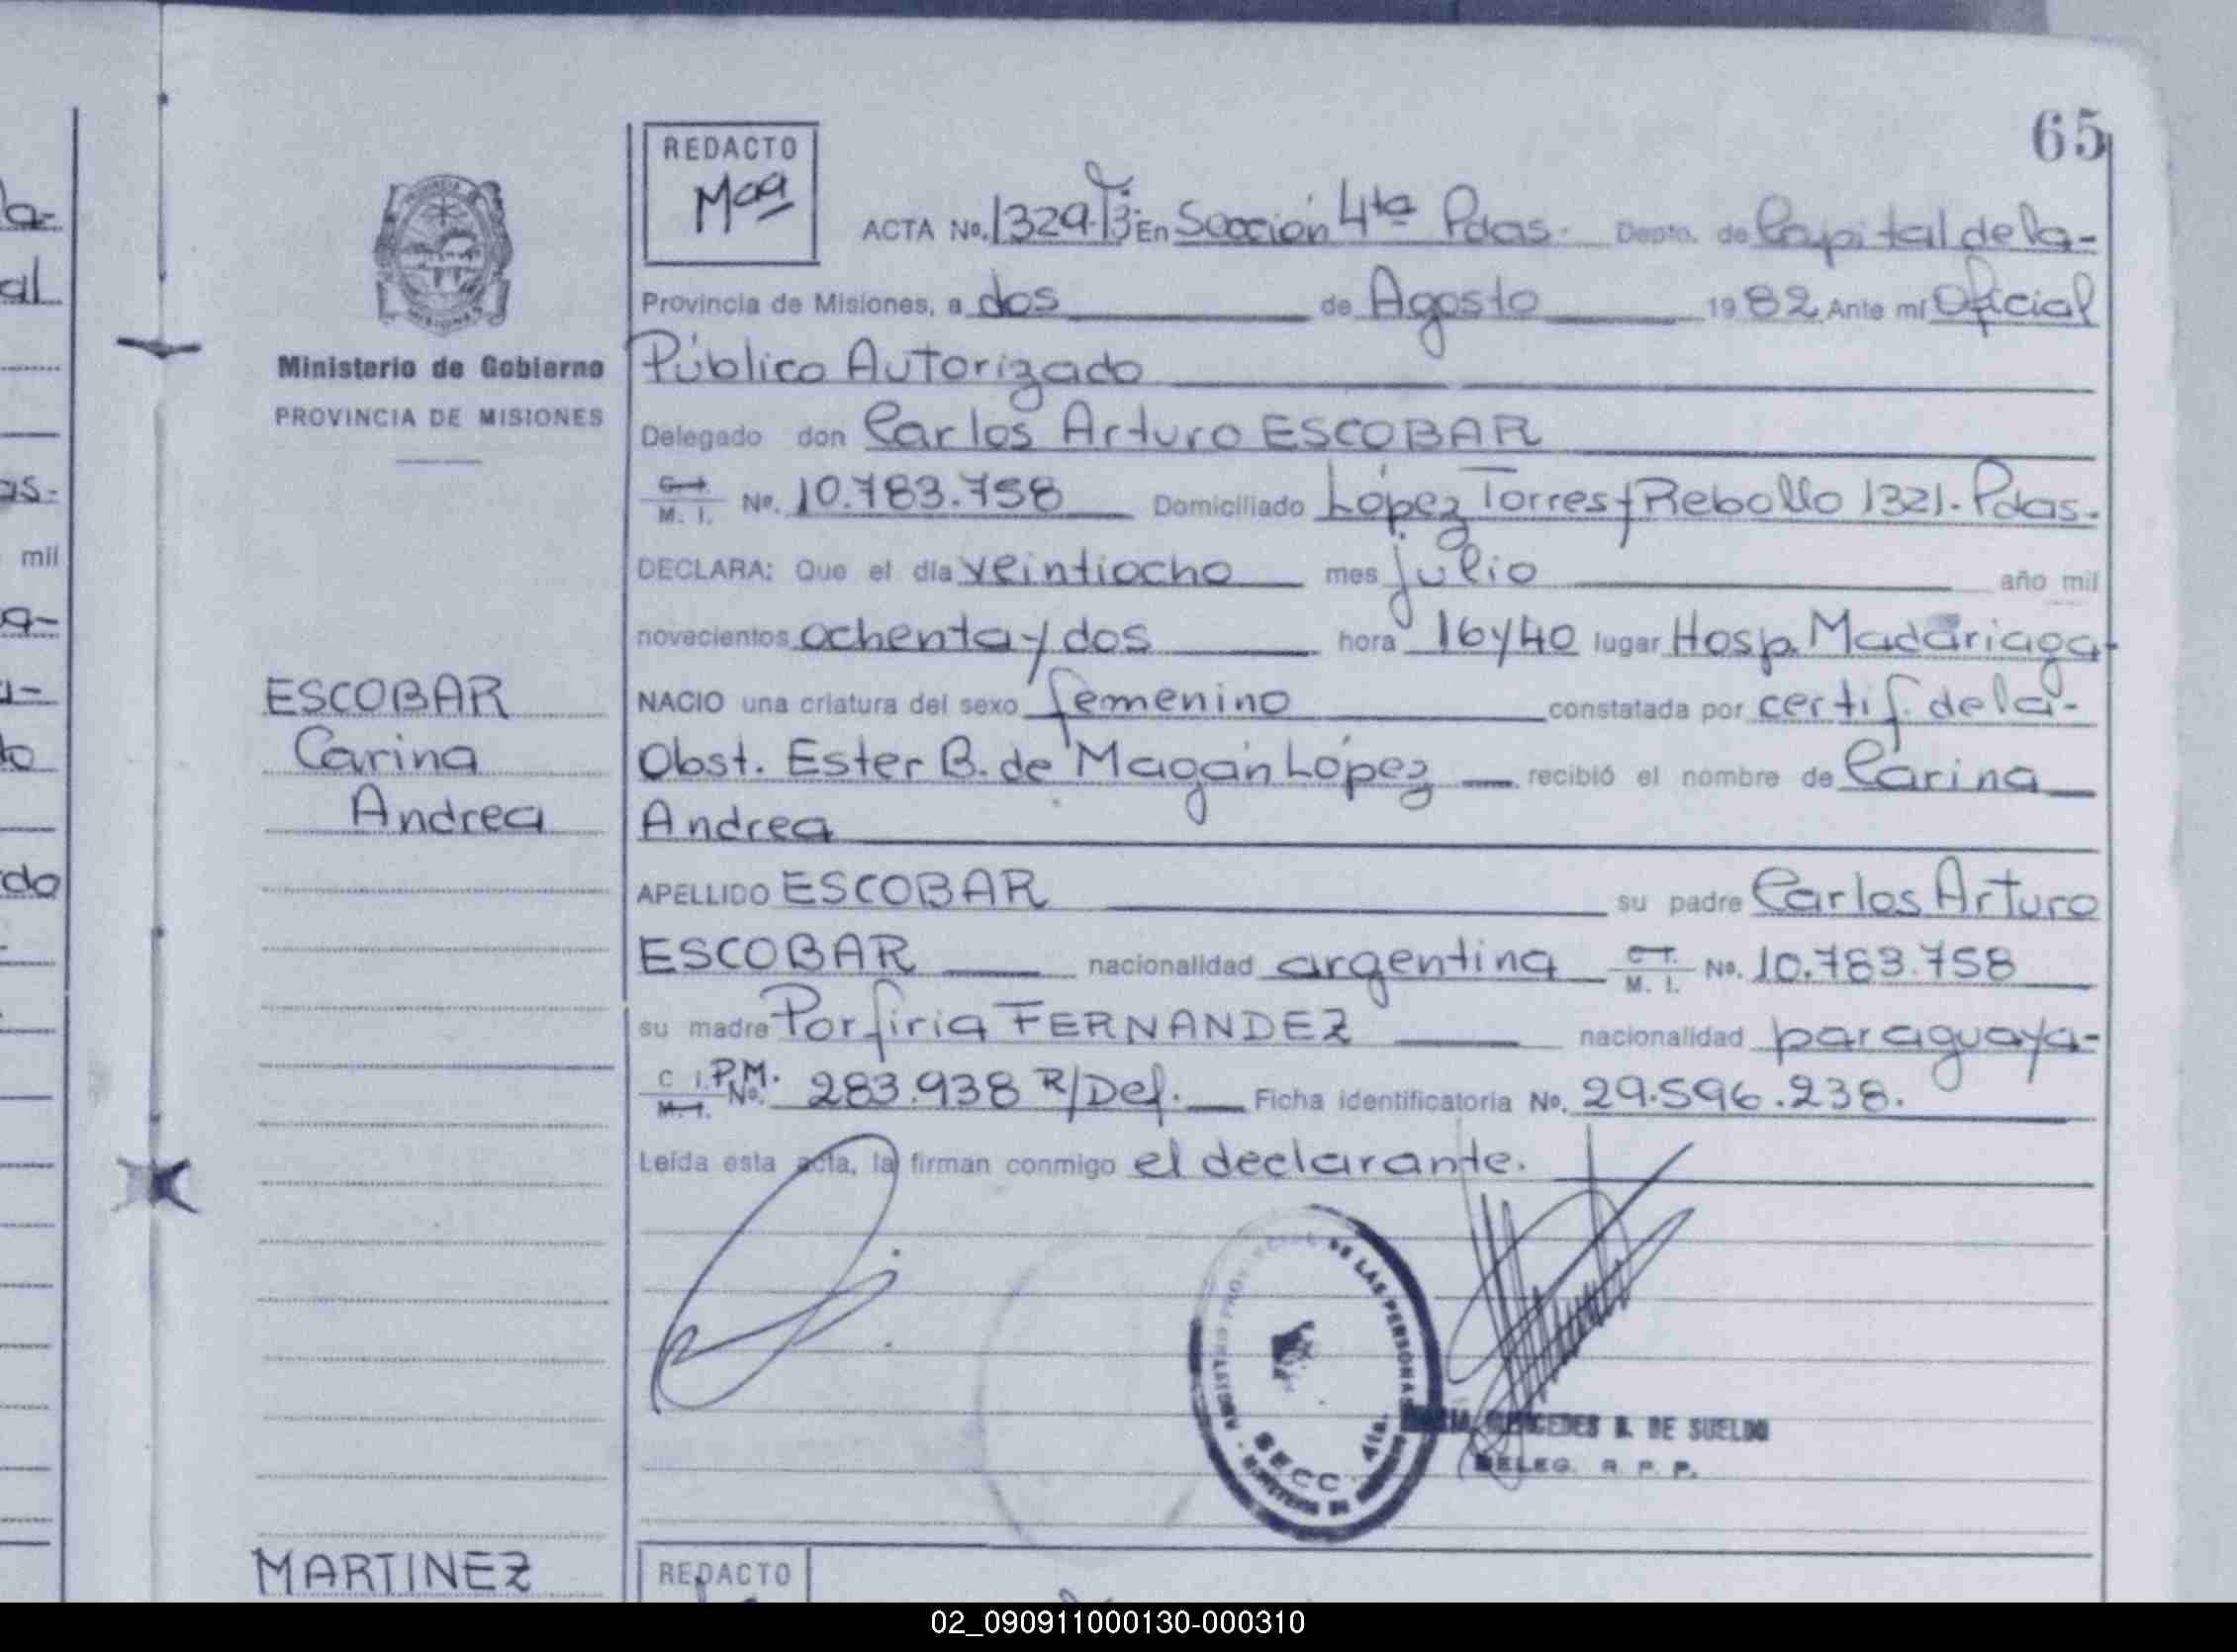 65
REDACTO
Maa
ACTA No. 1329. T: 3: En Sección 4ta Pdas. Depto. de Capital de la-
Provincia de Misiones, a dos de Agosto 1982 Ante mí Oficial
Público Autorizado
Delegado don Carlos Arturo ESCOBAR
C. I. M. I. No. 10.783.758 Domiciliado López Torres y Rebollo 1321. Pdas.
DECLARA: Que el día veintiocho mes julio año mil
novecientos ochenta y dos hora 16y40 lugar Hosp. Madariaga
NACIO una criatura del sexo femenino constatada por certif. de la-
Obst. Ester B. de Magán López recibió el nombre de Carina
Andrea
APELLIDO ESCOBAR su padre Carlos Arturo
ESCOBAR nacionalidad argentina C. I. M. I. No. 10.783.758
su madre Porfiria FERNANDEZ nacionalidad paraguaya-
C. I. P.M. M. I. No. 283.938 R/Def. Ficha identificatoria No. 29.596.238.
Leída esta acta, la firman conmigo el declarante.
PROVINCIAL DE LAS PERSONAS
SECC. 4ta.
MERCEDES B. DE SUELDO
DELEG. R. P. P.
Ministerio de Gobierno
PROVINCIA DE MISIONES
ESCOBAR
Carina
Andrea
MARTINEZ
REDACTO
a-
al
as-
mil
a-
a-
do
02_090911000130-000310